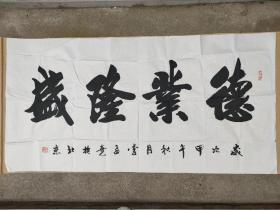 德業隆盛
歲次甲午秋月雲
於北京